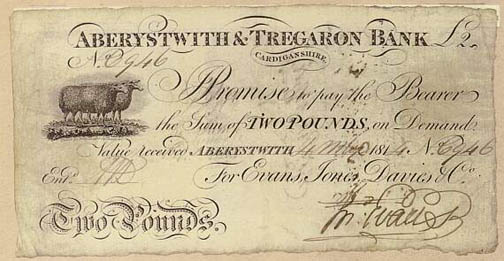 ABERYSTWITH & TREGARON BANK £2
CARDIGANSHIRE.
I Promise to pay the Bearer
the Sum of TWO POUNDS, on Demand
Value received ABERYSTWITH 4 1814 N. C946
Entd.
For Evans, Jones, Davies & Co.
Two Pounds.